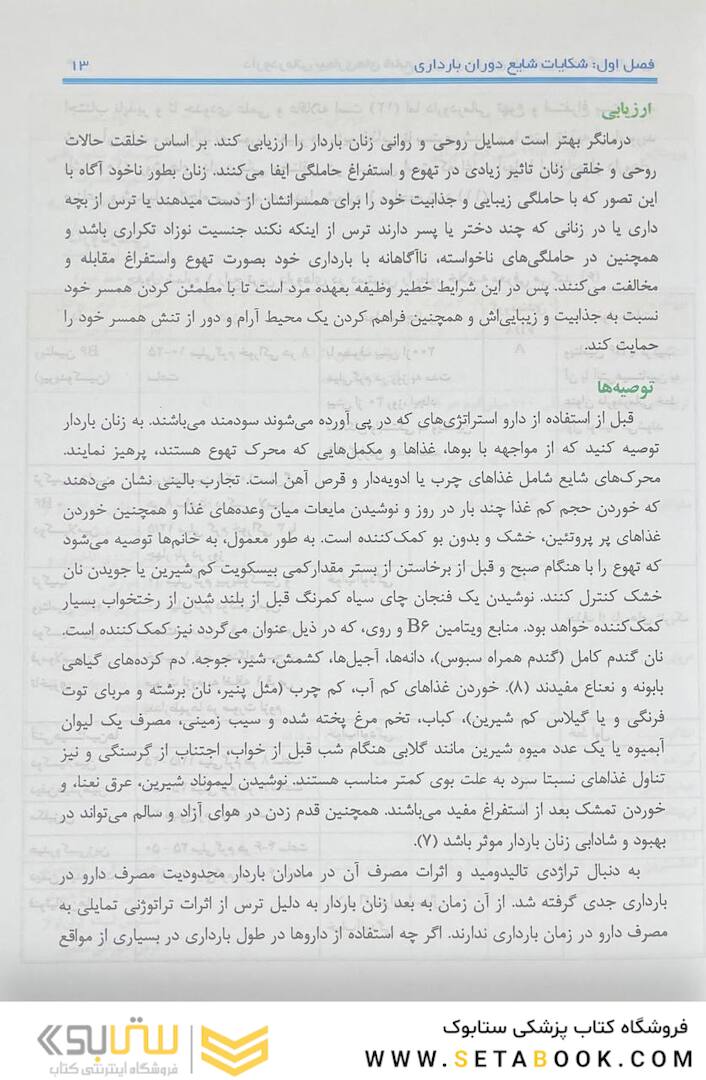 فصل اول: شکایات شایع دوران بارداری ۱۳
ارزیابی
درمانگر بهتر است مسایل روحی و روانی زنان باردار را ارزیابی کند. بر اساس خلقت حالات
روحی و خلقی زنان تاثیر زیادی در تهوع و استفراغ حاملگی ایفا می‌کنند. زنان بطور ناخود آگاه با
این تصور که با حاملگی زیبایی و جذابیت خود را برای همسرانشان از دست میدهند یا ترس از بچه
داری یا در زنانی که چند دختر یا پسر دارند ترس از اینکه نکند جنسیت نوزاد تکراری باشد و
همچنین در حاملگی‌های ناخواسته، ناآگاهانه با بارداری خود بصورت تهوع واستفراغ مقابله و
مخالفت می‌کنند. پس در این شرایط خطیر وظیفه بعهده مرد است تا با مطمئن کردن همسر خود
نسبت به جذابیت و زیبایی‌اش و همچنین فراهم کردن یک محیط آرام و دور از تنش همسر خود را
حمایت کند.
توصیه‌ها
قبل از استفاده از دارو استراتژی‌های که در پی آورده می‌شوند سودمند می‌باشند. به زنان باردار
توصیه کنید که از مواجهه با بوها، غذاها و مکمل‌هایی که محرک تهوع هستند، پرهیز نمایند.
محرک‌های شایع شامل غذاهای چرب یا ادویه‌دار و قرص آهن است. تجارب بالینی نشان می‌دهند
که خوردن حجم کم غذا چند بار در روز و نوشیدن مایعات میان وعده‌های غذا و همچنین خوردن
غذاهای پر پروتئین، خشک و بدون بو کمک‌کننده است. به طور معمول، به خانم‌ها توصیه می‌شود
که تهوع را با هنگام صبح و قبل از برخاستن از بستر مقدارکمی بیسکویت کم شیرین یا جویدن نان
خشک کنترل کنند. نوشیدن یک فنجان چای سیاه کمرنگ قبل از بلند شدن از رختخواب بسیار
کمک‌کننده خواهد بود. منابع ویتامین B۶ و روی، که در ذیل عنوان می‌گردد نیز کمک‌کننده است.
نان گندم کامل (گندم همراه سبوس)، دانه‌ها، آجیل‌ها، کشمش، شیر، جوجه. دم کرده‌های گیاهی
بابونه و نعناع مفیدند (۸). خوردن غذاهای کم آب، کم چرب (مثل پنیر، نان برشته و مربای توت
فرنگی و یا گیلاس کم شیرین)، کباب، تخم مرغ پخته شده و سیب زمینی، مصرف یک لیوان
آبمیوه یا یک عدد میوه شیرین مانند گلابی هنگام شب قبل از خواب، اجتناب از گرسنگی و نیز
تناول غذاهای نسبتا سرد به علت بوی کمتر مناسب هستند. نوشیدن لیموناد شیرین، عرق نعنا، و
خوردن تمشک بعد از استفراغ مفید می‌باشند. همچنین قدم زدن در هوای آزاد و سالم می‌تواند در
بهبود و شادابی زنان باردار موثر باشد (۷).
به دنبال تراژدی تالیدومید و اثرات مصرف آن در مادران باردار محدودیت مصرف دارو در
بارداری جدی گرفته شد. از آن زمان به بعد زنان باردار به دلیل ترس از اثرات تراتوژنی تمایلی به
مصرف دارو در زمان بارداری ندارند. اگر چه استفاده از داروها در طول بارداری در بسیاری از مواقع
فروشگاه کتاب پزشکی ستابوک
WWW.SETABOOK.COM
ستابوک
فروشگاه اینترنتی کتاب